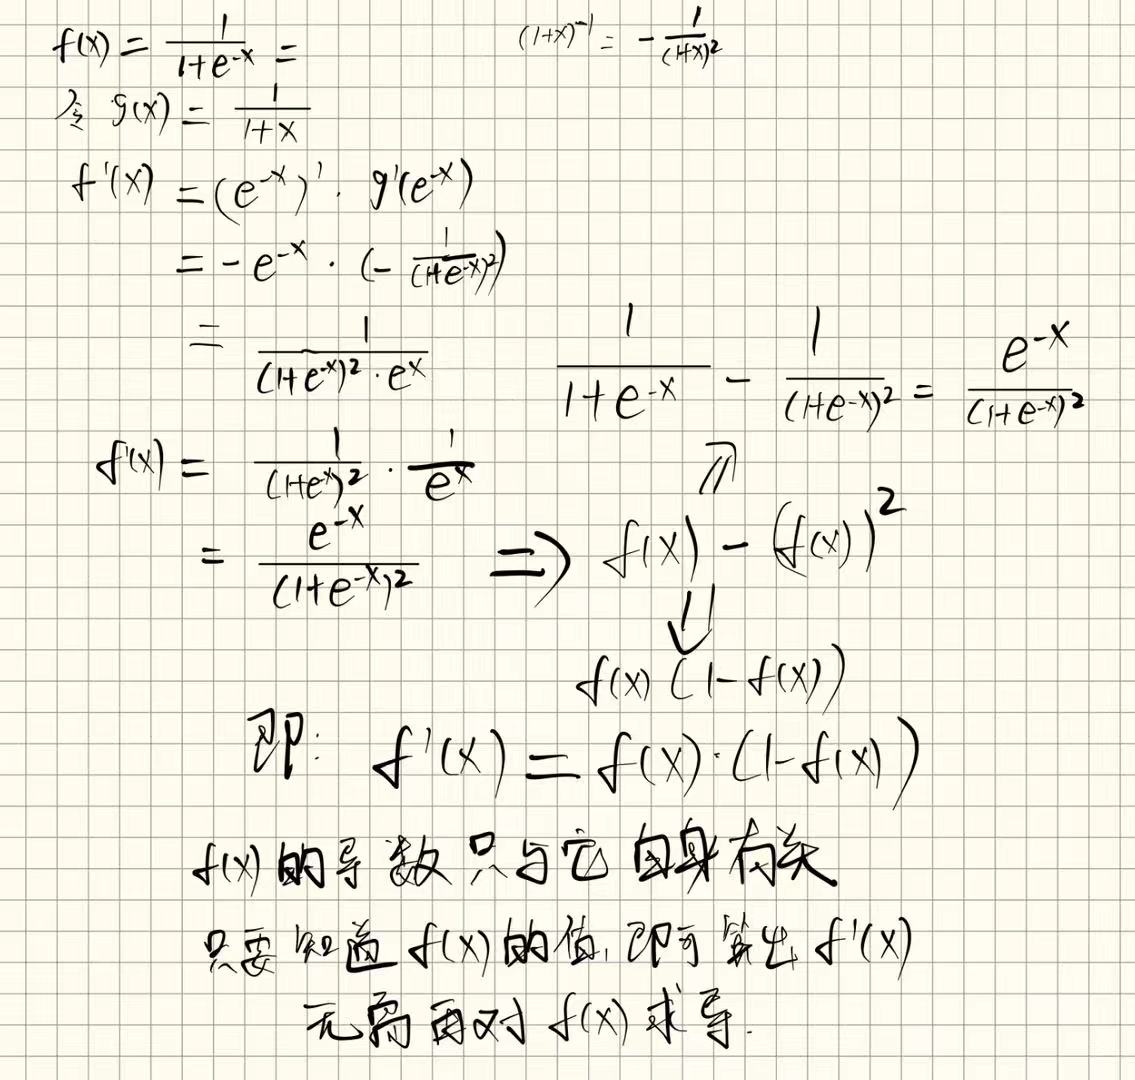 f(x) = 1/(1+e^-x) =
(1+x)^-1 = - 1/(1+x)^2
令 g(x) = 1/(1+x)
f'(x) = (e^-x)' · g'(e^-x)
= -e^-x · (- 1/(1+e^-x)^2)
= 1/((1+e^-x)^2 · e^x)
1/(1+e^-x) - 1/(1+e^-x)^2 = e^-x/(1+e^-x)^2
f'(x) = 1/(1+e^-x)^2 · 1/e^x
⇑
= e^-x/(1+e^-x)^2 ⇒ f(x) - (f(x))^2
⇓
f(x) (1-f(x))
即: f'(x) = f(x)·(1-f(x))
f(x) 的导数只与它自身有关
只要知道 f(x) 的值, 即可算出 f'(x)
无需再对 f(x) 求导.